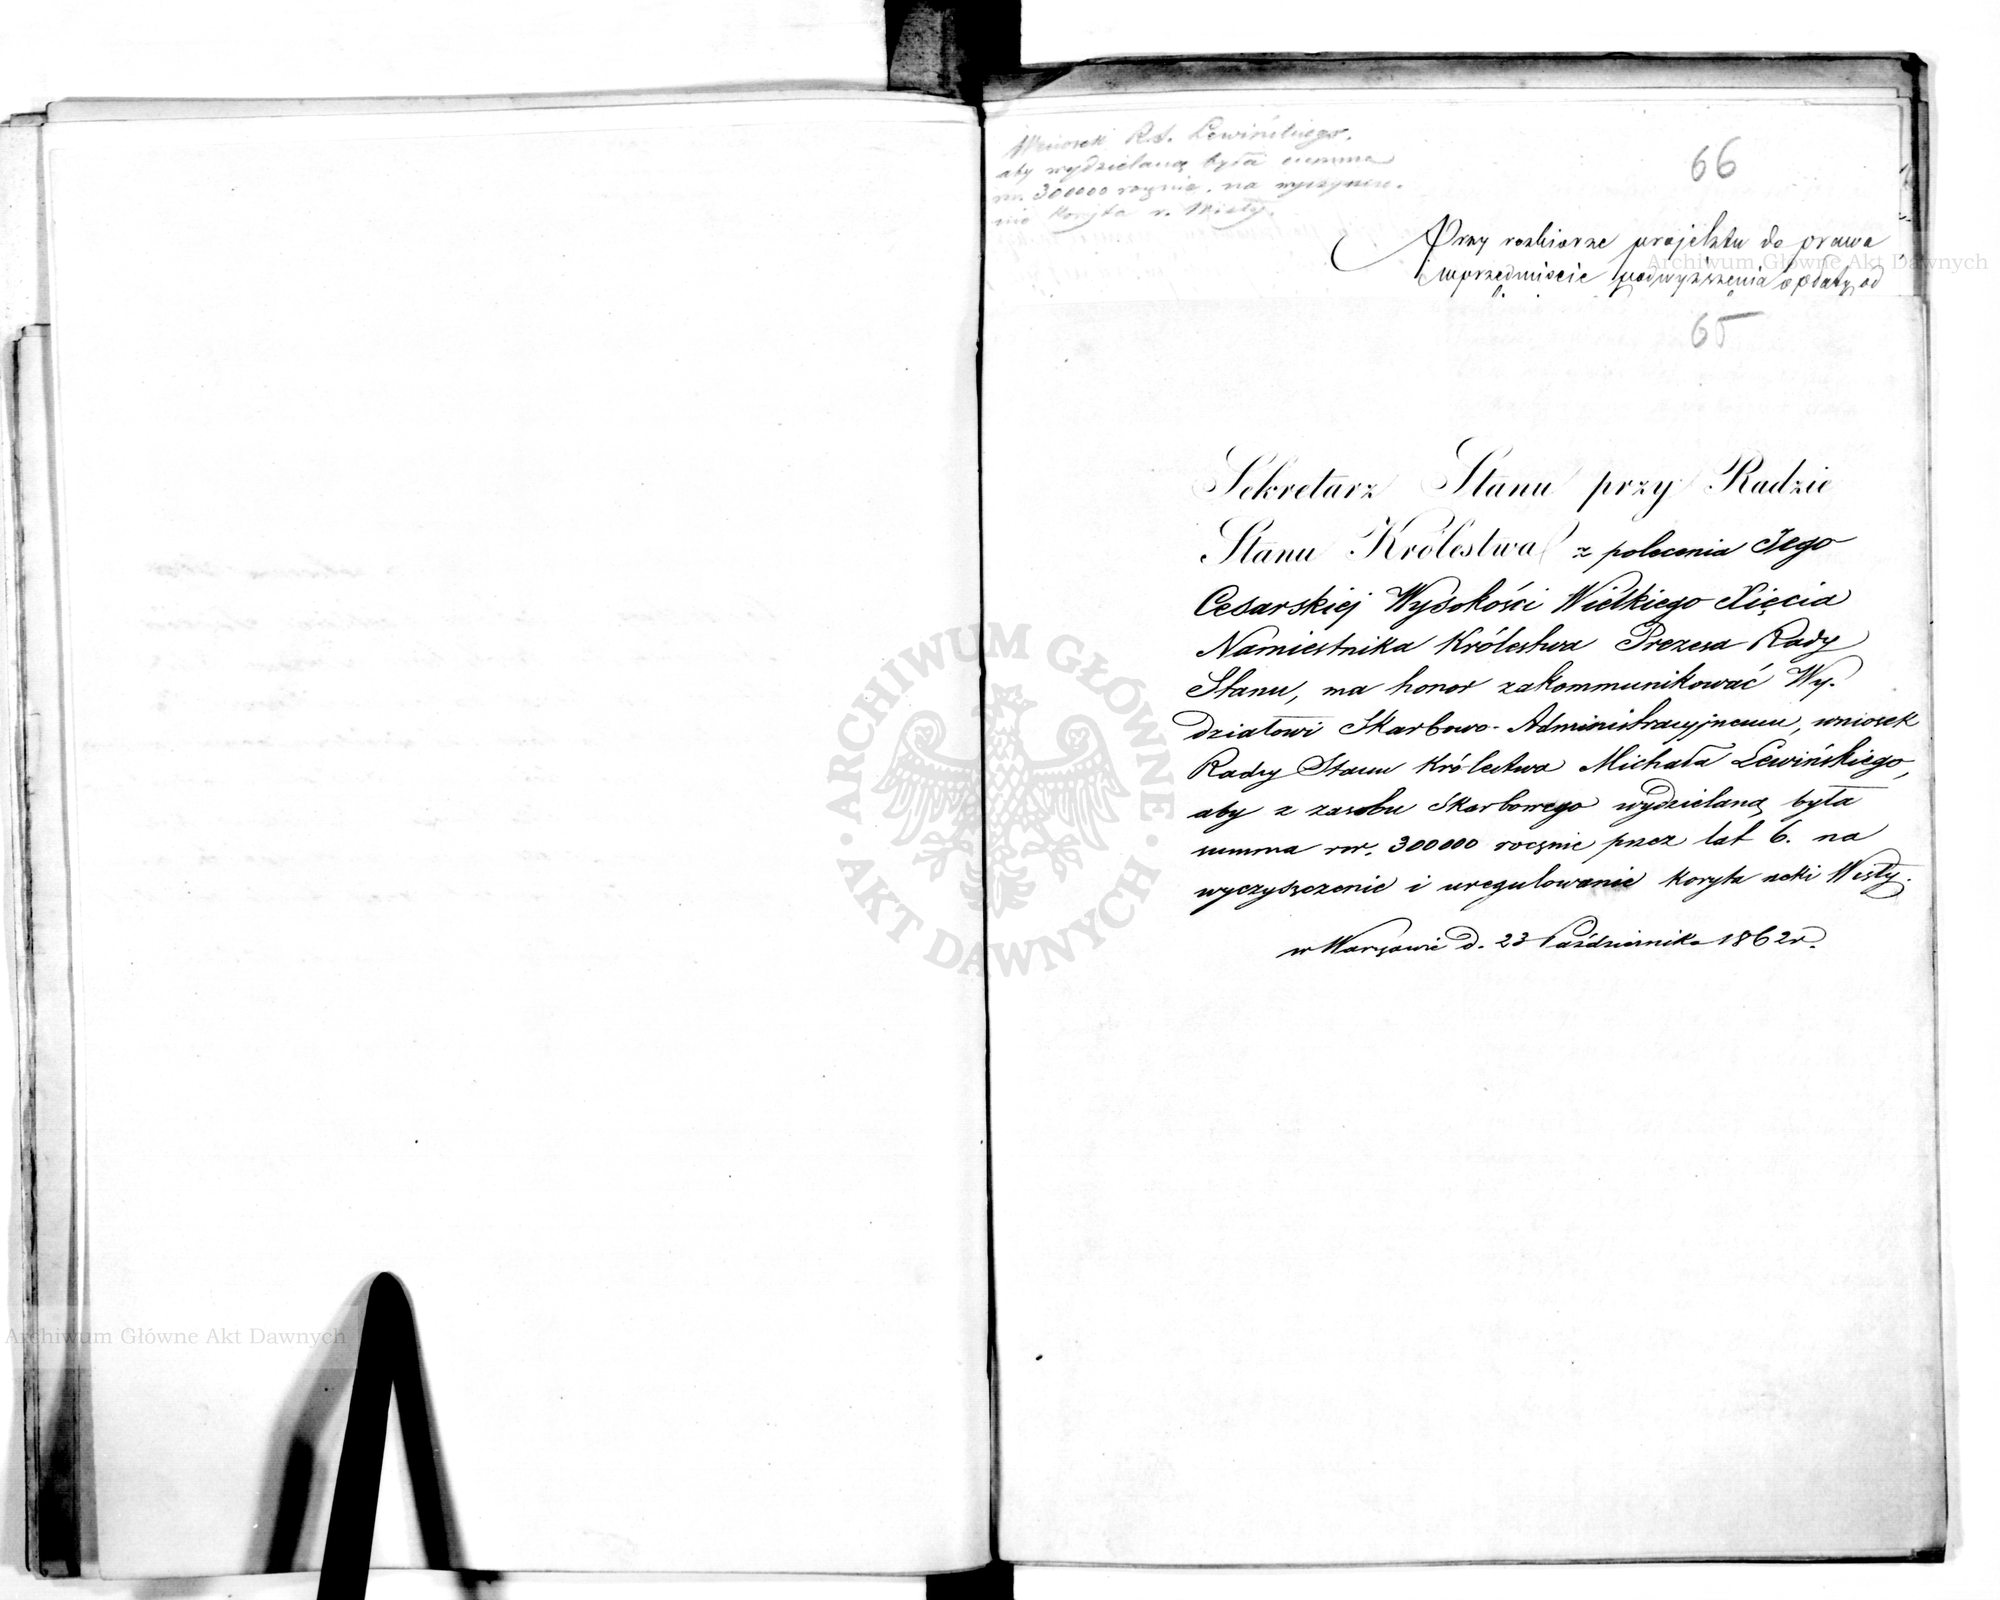 Wniosek R.S. Lewińskiego,
aby wydzielaną była summa
rsr. 300000 rocznie, na wyczyszcze-
nie koryta r. Wisły.
66
Przy rozbiorze projektu do prawa
w przedmiocie podwyższenia opłaty od
65
Sekretarz Stanu przy Radzie
Stanu Królestwa z polecenia Jego
Cesarskiej Wysokości Wielkiego Xięcia
Namiestnika Królestwa Prezesa Rady
Stanu, ma honor zakommunikować Wy-
działowi Skarbowo-Administracyjnemu, wniosek
Radzy Stanu Królestwa Michała Lewińskiego,
aby z zasobu Skarbowego wydzielaną była
summa rsr. 300000 rocznie przez lat 6. na
wyczyszczenie i uregulowanie koryta rzeki Wisły.
w Warszawie d. 23 Października 1862 r.
ARCHIWUM GŁÓWNE AKT DAWNYCH
Archiwum Główne Akt Dawnych
Archiwum Główne Akt Dawnych